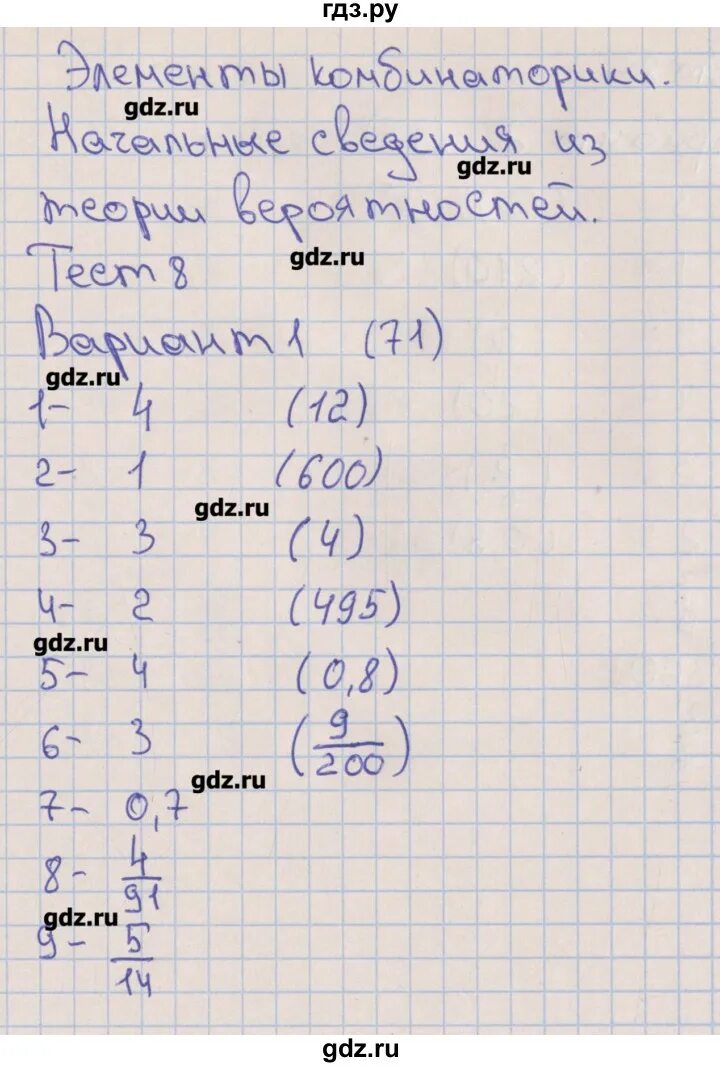 гдз.ру
Элементы комбинаторики.
gdz.ru
Начальные сведения из
gdz.ru
теории вероятностей.
gdz.ru
Тест 8
Вариант 1 (71)
gdz.ru
1- 4 (12)
2- 1 (600)
gdz.ru
3- 3 (4)
4- 2 (495)
gdz.ru
5- 4 (0,8)
6- 3 (9/200)
gdz.ru
7- 0,7
8- 4/91
gdz.ru
9- 5/14
gdz.ru